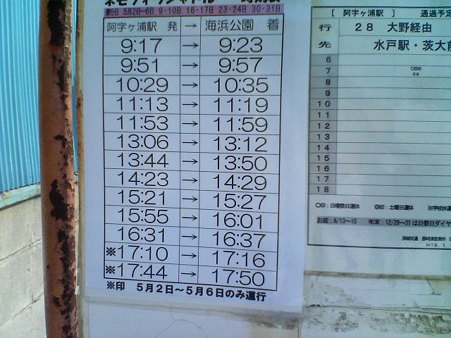 5月2日~6日 9・10日 16・17日 23・24日 30・31日
阿字ヶ浦駅 発 → 海浜公園 着
9:17 → 9:23
9:51 → 9:57
10:29 → 10:35
11:13 → 11:19
11:53 → 11:59
13:06 → 13:12
13:44 → 13:50
14:23 → 14:29
15:21 → 15:27
15:55 → 16:01
16:31 → 16:37
※17:10 → 17:16
※17:44 → 17:50
※印 5月2日~5月6日のみ運行
[ 阿字ヶ浦駅 ] 通過予定
行 28 大野経由
先 水戸駅・茨大前
6
7
8
9
10
11
12
13
14
15
16
17
18